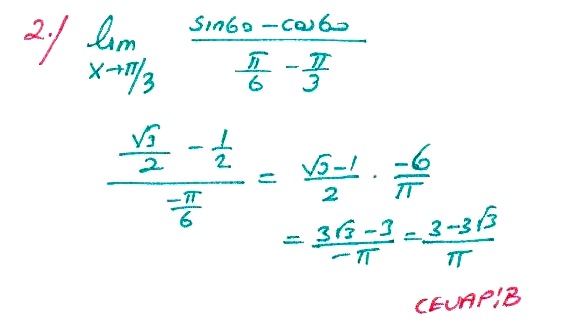 2.) lim x→π/3 (sin60 - cos60) / (π/6 - π/3)
(√3/2 - 1/2) / (-π/6) = (√3-1)/2 · -6/π
= (3√3 - 3)/-π = (3-3√3)/π
CEVAP:B